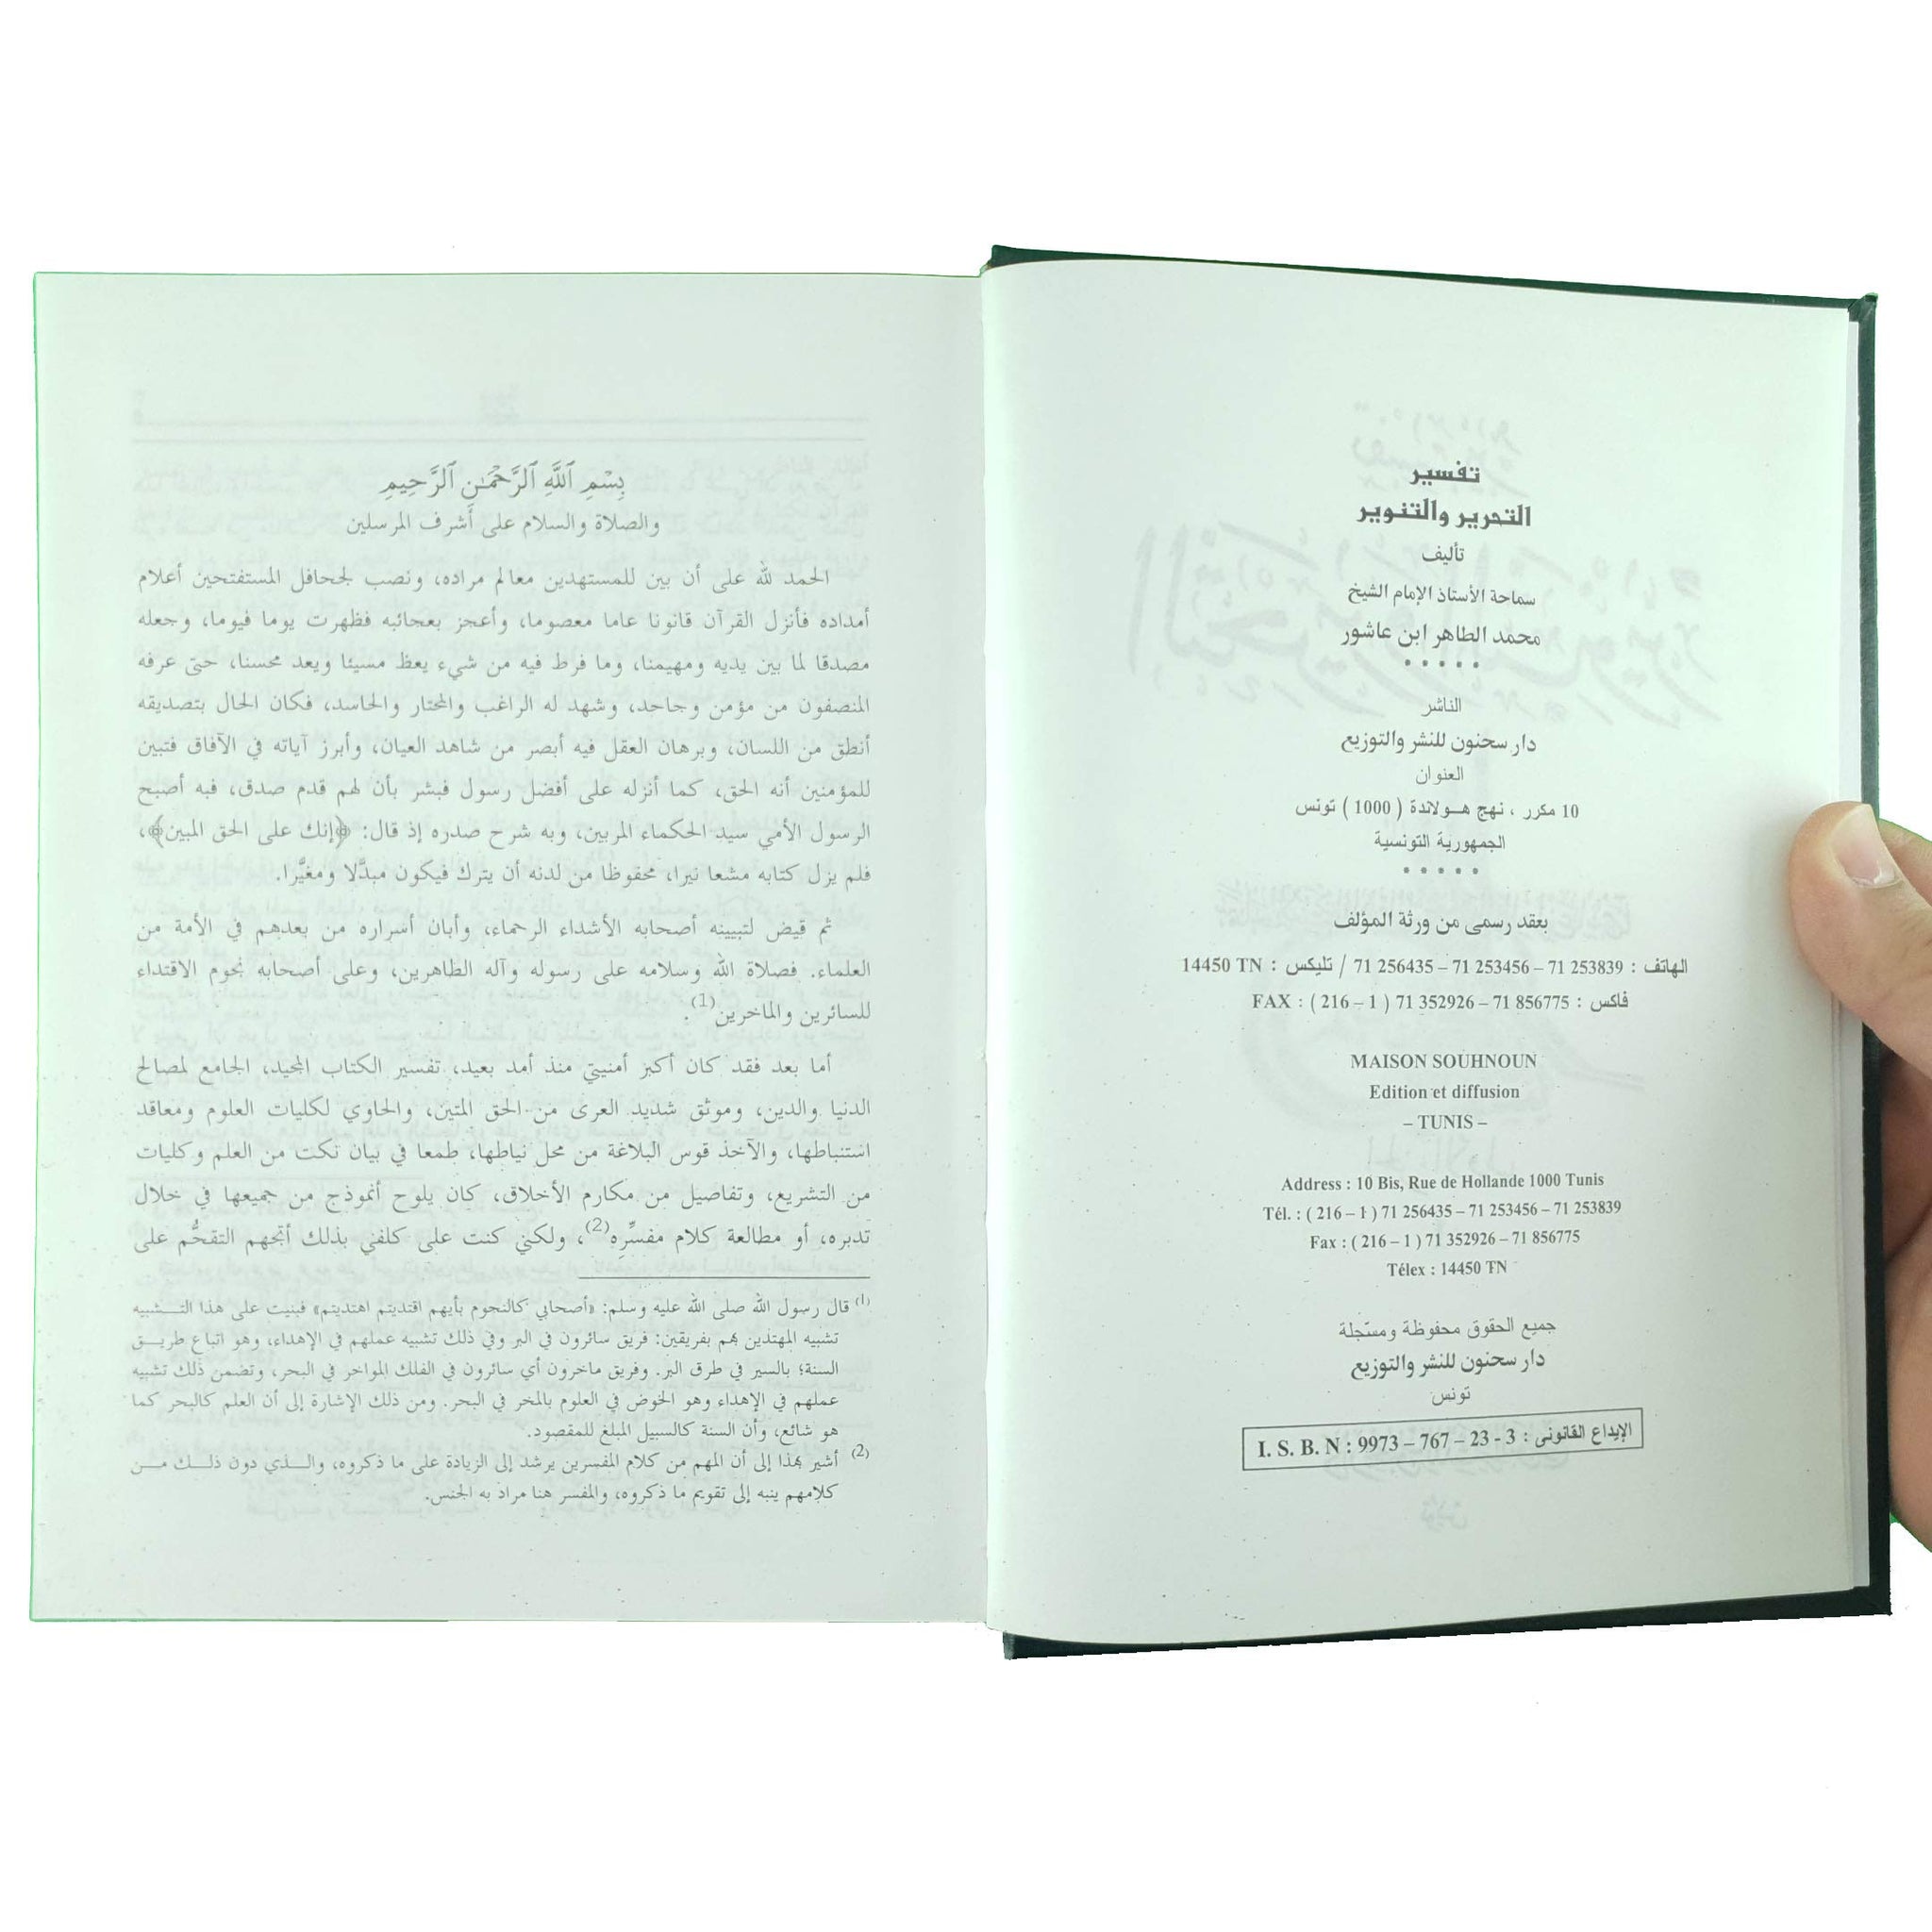 تفسير
التحرير والتنوير
تأليف
سماحة الأستاذ الإمام الشيخ
محمد الطاهر ابن عاشور
الناشر
دار سحنون للنشر والتوزيع
العنوان
10 مكرر ، نهج هولاندة ( 1000 ) تونس
الجمهورية التونسية
بعقد رسمى من ورثة المؤلف
الهاتف : 71 253839 – 71 253456 – 71 256435 / تليكس : 14450 TN
فاكس : 71 856775 – 71 352926 ( 1 – 216 ) : FAX
MAISON SOUHNOUN
Edition et diffusion
– TUNIS –
Address : 10 Bis, Rue de Hollande 1000 Tunis
Tél. : ( 216 – 1 ) 71 256435 – 71 253456 – 71 253839
Fax : ( 216 – 1 ) 71 352926 – 71 856775
Télex : 14450 TN
جميع الحقوق محفوظة ومسجلة
دار سحنون للنشر والتوزيع
تونس
الإيداع القانونى : I. S. B. N : 9973 – 767 – 23 - 3
بِسْمِ ٱللَّهِ ٱلرَّحْمَٰنِ ٱلرَّحِيمِ
والصلاة والسلام على أشرف المرسلين
الحمد لله على أن بين للمستهدين معالم مراده، ونصب لجحافل المستفتحين أعلام
أمداده فأنزل القرآن قانونا عاما معصوما، وأعجز بعجائبه فظهرت يوما فيوما، وجعله
مصدقا لما بين يديه ومهيمنا، وما فرط فيه من شيء يعظ مسيئا ويعد محسنا، حتى عرفه
المنصفون من مؤمن وجاحد، وشهد له الراغب والمحتار والحاسد، فكان الحال بتصديقه
أنطق من اللسان، وبرهان العقل فيه أبصر من شاهد العيان، وأبرز آياته في الآفاق فتبين
للمؤمنين أنه الحق، كما أنزله على أفضل رسول فبشر بأن لهم قدم صدق، فبه أصبح
الرسول الأمي سيد الحكماء المربين، وبه شرح صدره إذ قال: ﴿إنك على الحق المبين﴾،
فلم يزل كتابه مشعا نيرا، محفوظا من لدنه أن يترك فيكون مبدَّلا ومغيَّرا.
ثم قيض لتبيينه أصحابه الأشداء الرحماء، وأبان أسراره من بعدهم في الأمة من
العلماء. فصلاة الله وسلامه على رسوله وآله الطاهرين، وعلى أصحابه نجوم الاقتداء
للسائرين والماخرين(1).
أما بعد فقد كان أكبر أمنيتي منذ أمد بعيد، تفسير الكتاب المجيد، الجامع لمصالح
الدنيا والدين، وموثق شديد العرى من الحق المتين، والحاوي لكليات العلوم ومعاقد
استنباطها، والآخذ قوس البلاغة من محل نياطها، طمعا في بيان نكت من العلم وكليات
من التشريع، وتفاصيل من مكارم الأخلاق، كان يلوح أنموذج من جميعها في خلال
تدبره، أو مطالعة كلام مفسِّرِه(2)، ولكني كنت على كلفي بذلك أتجهم التقحُّم على
(1) قال رسول الله صلى الله عليه وسلم: «أصحابي كالنجوم بأيهم اقتديتم اهتديتم» فبنيت على هذا التشبيه
تشبيه المهتدين بهم بفريقين: فريق سائرون في البر وفي ذلك تشبيه عملهم في الإهداء، وهو اتباع طريق
السنة؛ بالسير في طرق البر. وفريق ماخرون أي سائرون في الفلك المواخر في البحر، وتضمن ذلك تشبيه
عملهم في الإهداء وهو الخوض في العلوم بالمخر في البحر. ومن ذلك الإشارة إلى أن العلم كالبحر كما
هو شائع، وأن السنة كالسبيل المبلغ للمقصود.
(2) أشير بهذا إلى أن المهم من كلام المفسرين يرشد إلى الزيادة على ما ذكروه، والذي دون ذلك من
كلامهم ينبه إلى تقويم ما ذكروه، والمفسر هنا مراد به الجنس.